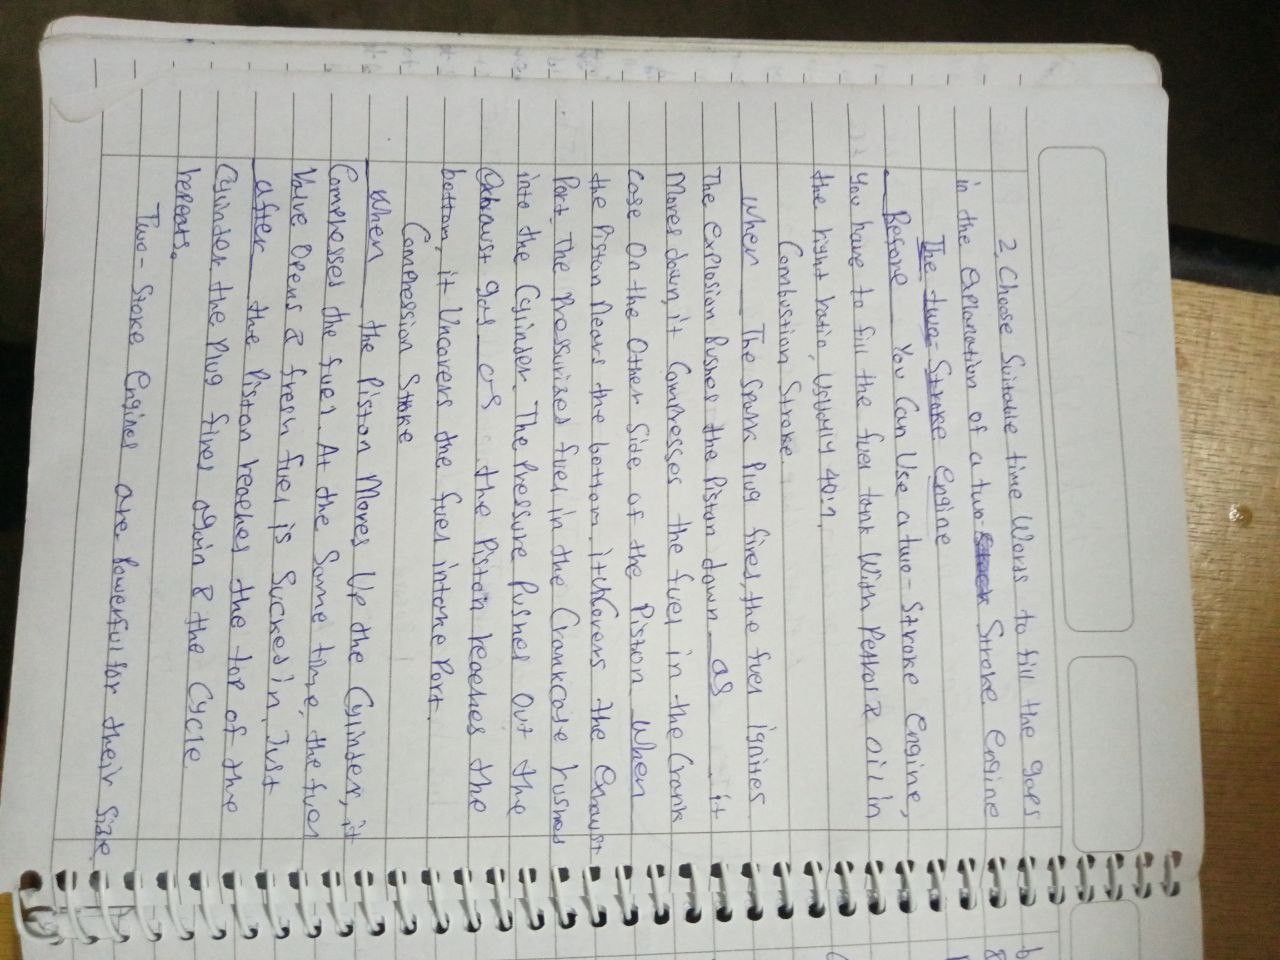 2. Choose Suitable time Words to fill the gaps
in the explanation of a two- Stroke engine
The two- Stroke engine
Before You Can Use a two- Stroke engine,
You have to fill the fuel tank With Petrol & oil in
the right ratio, Usually 40:1.
Combustion Stroke.
when The Spark Plug fires, the fuel ignites
The explosion Pushes the Piston down as it
Moves down, it Compresses the fuel in the Crank
Case On the Other Side of the Piston When
the Piston Nears the bottom, it uncovers the exhaust
Port. The Pressurised fuel in the Crankcase rushes
into the Cylinder. The Pressure Pushes Out the
exhaust gas as the Piston reaches the
bottom, it Uncovers the fuel intake Port.
Compression Stroke
When the Piston Moves Up the Cylinder, it
Compresses the fuel. At the Same time, the fuel
Valve Opens & fresh fuel is Sucked in. Just
after the Piston reaches the top of the
Cylinder the Plug fires again & the Cycle
repeats.
Two- Stoke Engines are Powerful for their Size.